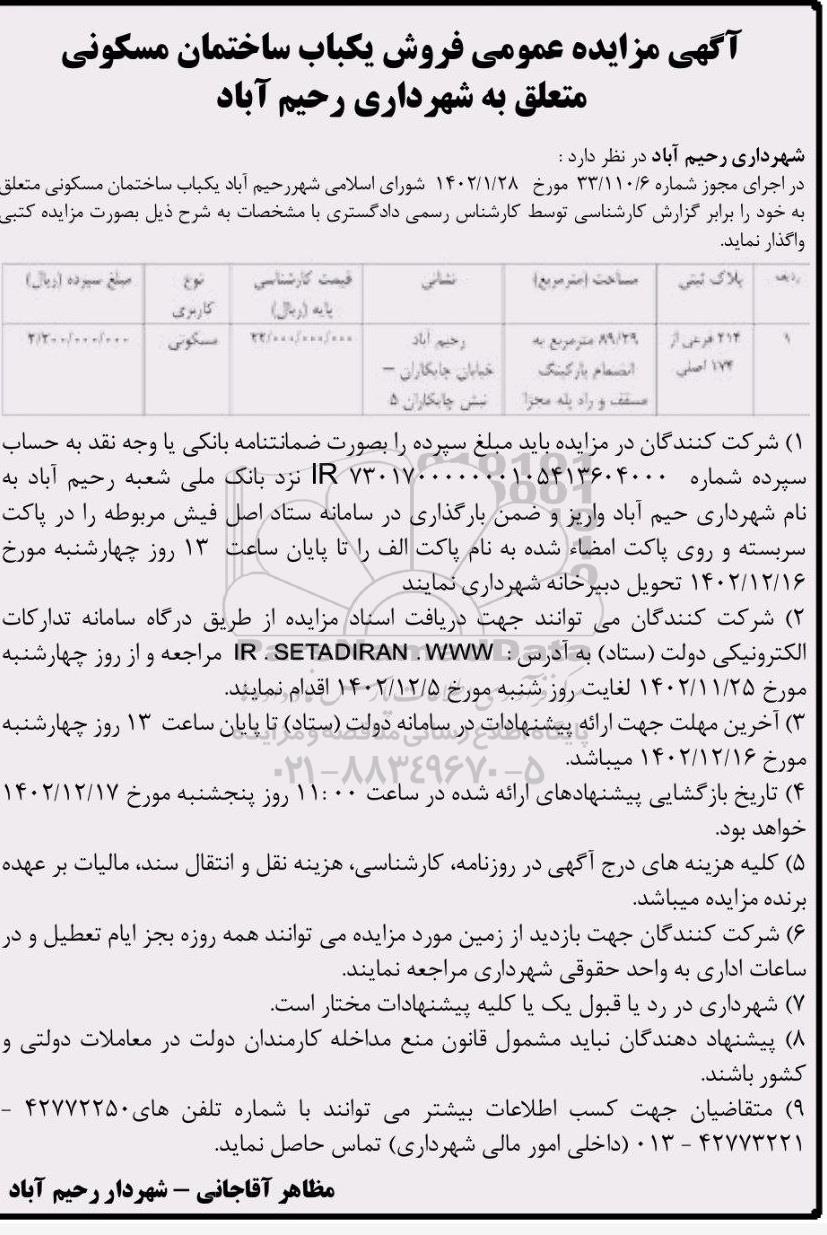 آگهی مزایده عمومی فروش یکباب ساختمان مسکونی
متعلق به شهرداری رحیم آباد
شهرداری رحیم آباد در نظر دارد :
در اجرای مجوز شماره ۳۳/۱۱۰/۶ مورخ ۱۴۰۲/۱/۲۸ شورای اسلامی شهررحیم آباد یکباب ساختمان مسکونی متعلق
به خود را برابر گزارش کارشناسی توسط کارشناس رسمی دادگستری با مشخصات به شرح ذیل بصورت مزایده کتبی
واگذار نماید.
ردیف پلاک ثبتی مساحت (مترمربع) نشانی قیمت کارشناسی نوع مبلغ سپرده (ریال)
پایه (ریال) کاربری
۱ ۲۱۴ فرعی از ۸۹/۲۹ مترمربع به رحیم آباد ۲۲/۰۰۰/۰۰۰/۰۰۰ مسکونی ۲/۲۰۰/۰۰۰/۰۰۰
۱۷۴ اصلی انضمام پارکینگ خیابان چابکاران –
مسقف و راه پله مجزا نبش چابکاران ۵
۱) شرکت کنندگان در مزایده باید مبلغ سپرده را بصورت ضمانتنامه بانکی یا وجه نقد به حساب
سپرده شماره IR ۷۳۰۱۷۰۰۰۰۰۰۰۰۱۰۵۴۱۳۶۰۴۰۰۰ نزد بانک ملی شعبه رحیم آباد به
نام شهرداری حیم آباد واریز و ضمن بارگذاری در سامانه ستاد اصل فیش مربوطه را در پاکت
سربسته و روی پاکت امضاء شده به نام پاکت الف را تا پایان ساعت ۱۳ روز چهارشنبه مورخ
۱۴۰۲/۱۲/۱۶ تحویل دبیرخانه شهرداری نمایند
۲) شرکت کنندگان می توانند جهت دریافت اسناد مزایده از طریق درگاه سامانه تدارکات
الکترونیکی دولت (ستاد) به آدرس : IR . SETADIRAN . WWW مراجعه و از روز چهارشنبه
مورخ ۱۴۰۲/۱۱/۲۵ لغایت روز شنبه مورخ ۱۴۰۲/۱۲/۵ اقدام نمایند.
۳) آخرین مهلت جهت ارائه پیشنهادات در سامانه دولت (ستاد) تا پایان ساعت ۱۳ روز چهارشنبه
پایگاه اطلاع رسانی مناقصه و مزایده
مورخ ۱۴۰۲/۱۲/۱۶ میباشد.
۰۲۱-۸۸۳۴۹۶۷۰-۵
۴) تاریخ بازگشایی پیشنهادهای ارائه شده در ساعت ۱۱:۰۰ روز پنجشنبه مورخ ۱۴۰۲/۱۲/۱۷
خواهد بود.
۵) کلیه هزینه های درج آگهی در روزنامه، کارشناسی، هزینه نقل و انتقال سند، مالیات بر عهده
برنده مزایده میباشد.
۶) شرکت کنندگان جهت بازدید از زمین مورد مزایده می توانند همه روزه بجز ایام تعطیل و در
ساعات اداری به واحد حقوقی شهرداری مراجعه نمایند.
۷) شهرداری در رد یا قبول یک یا کلیه پیشنهادات مختار است.
۸) پیشنهاد دهندگان نباید مشمول قانون منع مداخله کارمندان دولت در معاملات دولتی و
کشور باشند.
۹) متقاضیان جهت کسب اطلاعات بیشتر می توانند با شماره تلفن های۴۲۷۷۲۲۵۰ -
۴۲۷۷۳۲۲۱ - ۰۱۳ (داخلی امور مالی شهرداری) تماس حاصل نماید.
مظاهر آقاجانی – شهردار رحیم آباد